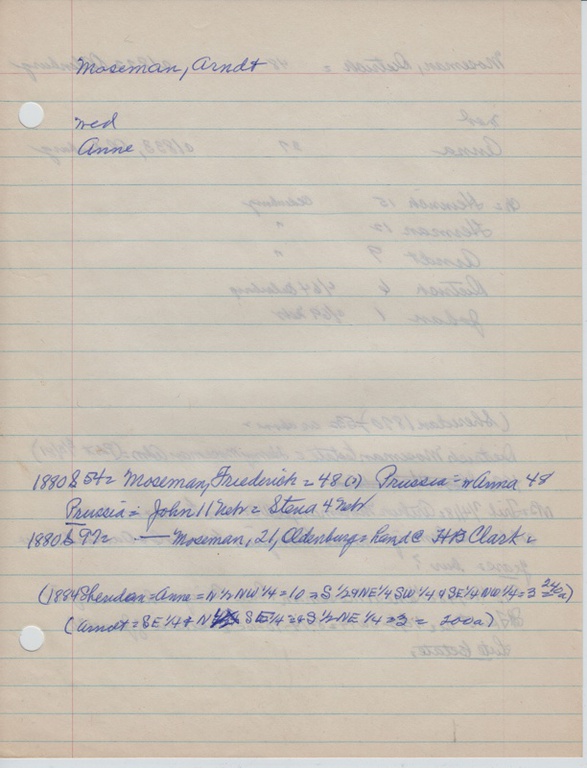 Moseman, Arndt
wed
Anne
1880 S 54 = Moseman, Friederick = 48 (?) Prussia = w Anna 48
Prussia = John 11 Neb = Stena 4 Neb
1880 S 97 = — Moseman, 21, Oldenburg = hand @ H B Clark =
(1884 Sheridan = Anne = N ½ NW ¼ = 10 = S ½ NE ¼ SW ¼ & SE ¼ NW ¼ = 3 240a)
(Arndt = SE ¼ + N ½ SE ¼ = & S ½ NE ¼ = 3 = 200a)